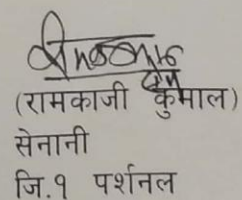 (रामकाजी कुमाल)
सेनानी
जि.१ पर्शनल